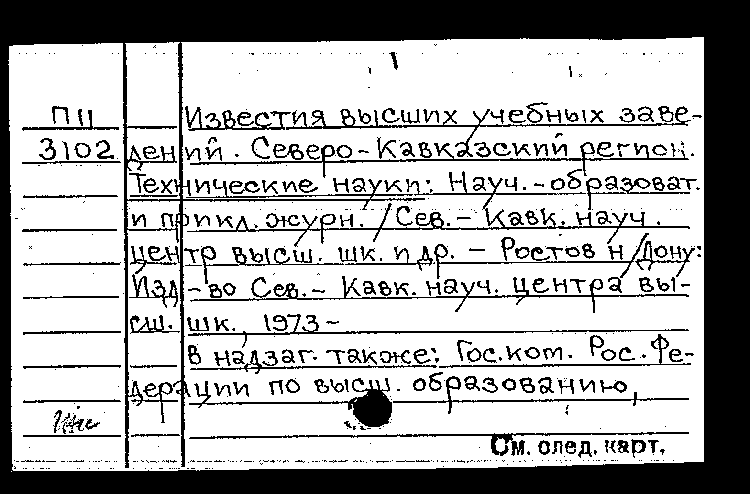 ПII Известия высших учебных заве-
3102 дений. Северо-Кавказский регион.
Технические науки: Науч.-образоват.
и прикл. журн. / Сев.- Кавк. науч.
центр высш. шк. и др. – Ростов н/Дону:
Изд-во Сев.- Кавк. науч. центра вы-
сш. шк., 1973-
В надзаг. также: Гос. ком. Рос. Фе-
дерации по высш. образованию,
См. след. карт.